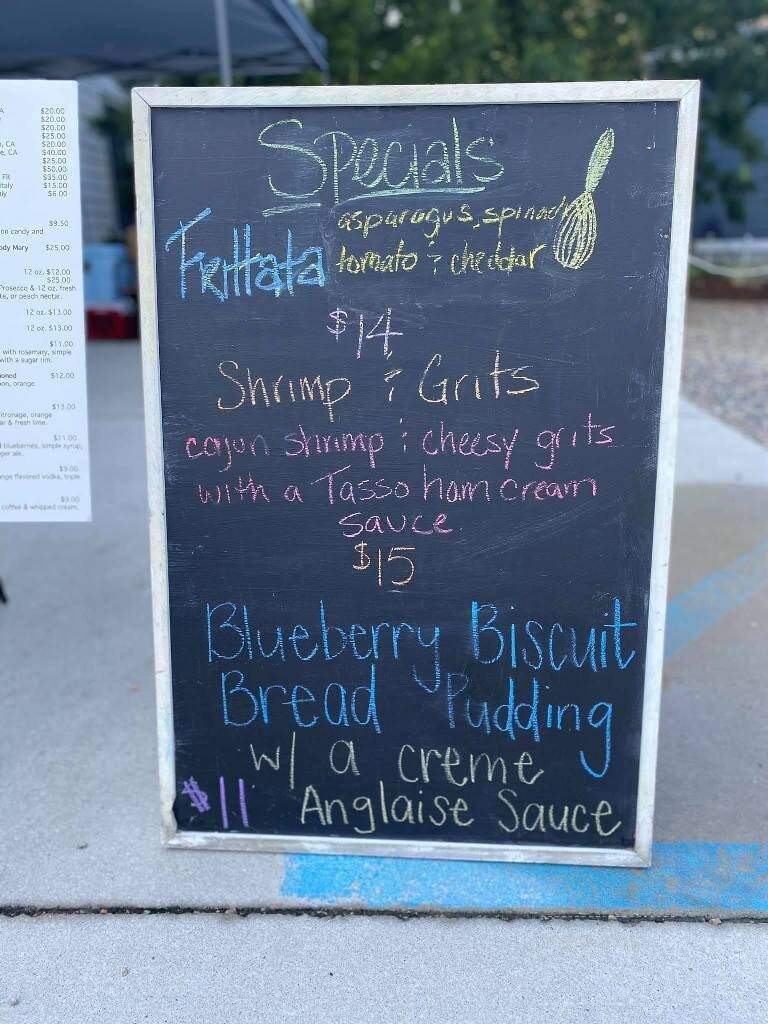 $20.00
$20.00
$20.00
$25.00
, CA $20.00
e, CA $40.00
$25.00
$50.00
FR $35.00
Italy $15.00
$6.00
$9.50
on candy and
ody Mary $25.00
12 oz. $12.00
$25.00
Prosecco & 12 oz. fresh
te, or peach nectar.
12 oz. $13.00
12 oz. $13.00
$11.00
with rosemary, simple
with a sugar rim.
$12.00
orange
$13.00
orange
& fresh lime.
$11.00
blueberries, simple syrup,
ger ale.
$9.00
flavored vodka, triple
$9.00
coffee & whipped cream.
Specials
asparagus, spinach
Frittata tomato & cheddar
$14
Shrimp & Grits
cajun shrimp & cheesy grits
with a Tasso ham cream
sauce
$15
Blueberry Biscuit
Bread Pudding
w/ a creme
$11 Anglaise Sauce